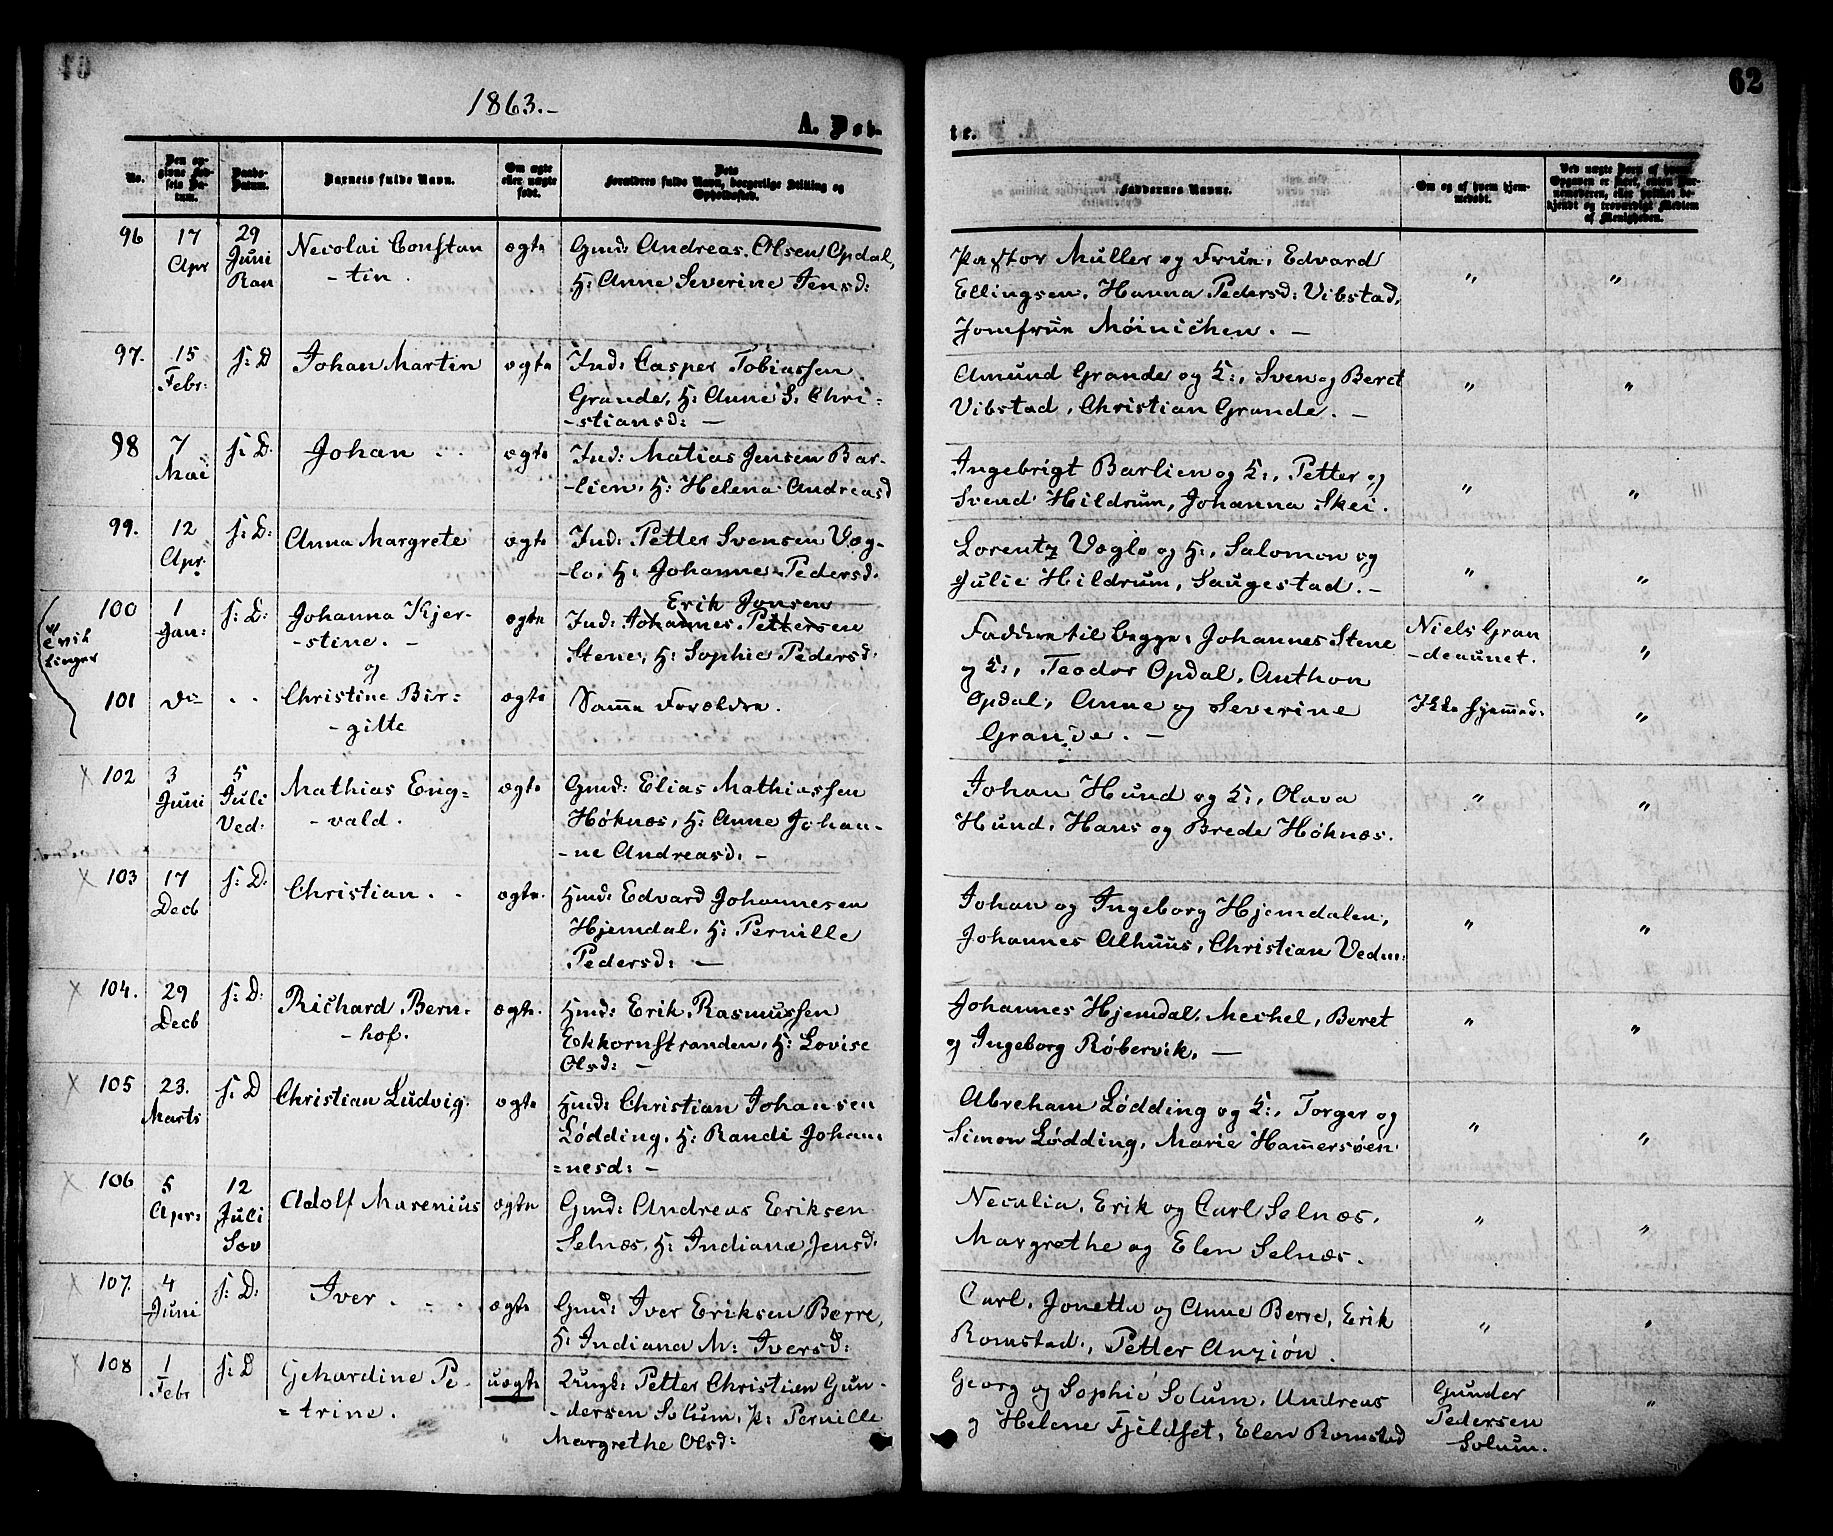 1863.-
62
A. Føb-
te.
No.
Den opgivne Fødsels Datum.
Daabs-Datum.
Barnets fulde Navn.
Om ægte eller uægte født.
Dets Forældres fulde Navn, borgerlige Stilling og Opholdssted.
Faddernes Navne.
Om og af hvem hjemmedøbt.
96 17 Apr 29 Juni Ran Necolai Constan -tin. ægte Gmd: Andreas Olsen Opdal,
H: Anne Severine Jensd:
Pastor Müller og Frue, Edvard
Ellingsen, Hanna Pedersd: Vibstad,
Jomfrue Møinichen. - " "
97. 15 Febr: s: D Johan Martin ægte Ind: Casper Tobiassen
Grande, H: Anne S. Chri=
-stiansd: -
Amund Grande og K:, Sven og Beret
Vibstad, Christian Grande. - " "
98 7 Mai s: D. Johan ægte Ind: Matias Jensen Bar-
-lien, H: Helena Andreasd
Ingebrigt Barlien og K:, Petter og
Svend Hildrum, Johanna Skei. " "
99. 12 Apr. s: D: Anna Margrete ægte Ind: Petter Svensen Væg-
-lo, H: Johanne Pedersd.
Lorentz Væglo og H:, Salomon og
Julie Hildrum, Saugestad. - " "
Tvillinger
100 1 Jan: s: D: Johanna Kjer-
-stine. -
og
ægte Erik Jonsen
Ind: Johannes Pettersen
Stene, H: Sophie Pedersd:
Faddere til begge, Johannes Stene
og K:, Teodor Opdal, Anthon
Niels Gran
-deaunet. "
101 do Christine Bir-
-gitte ægte Samme Forældre.
Opdal, Anne og Severine
Grande. -
Ikke hjemmed: "
102 3 Juni 5 Juli Ved: Mathias Eng=
-vald. ægte Gmd: Elias Mathiassen
Høknæs, H: Anne Johan-
-ne Andreasd. -
Johan Hund og K:, Olava
Hund, Hans og Brede Høknæs. " "
103 17 Decb s: D: Christian. ægte. Hmd: Edvard Johannesen
Hjemdal, H: Pernille
Pedersd: -
Johan og Ingeborg Hjemdalen,
Johannes Alhuus, Christian Vedm: " "
104. 29 Decb s: D: Richard Bern-
-hof. ægte. Hmd: Erik Rasmussen
Ekkornstranden, H: Lovise
Olsd: -
Johannes Hjemdal, Mechel, Beret
og Ingeborg Røbervik. - " "
105 23. Marts s: D Christian Ludvig. ægte Hmd: Christian Johansen
Lødding, H: Randi Johan-
=nesd: -
Abreham Lødding og K:, Torger og
Simon Lødding, Marie Hamersøen " "
106 5 Apr: 12 Juli Sæv Adolf Marenius ægte Gmd: Andreas Eriksen
Selnæs, H: Indiana Jensd:
Necalia, Erik og Carl Selnæs,
Margrethe og Elen Selnæs. " "
107. 4 Juni s: D: Iver ægte Gmd: Iver Eriksen Berre,
H: Indiana M: Iversd:
Carl, Jonetta og Anne Berre, Erik
Romstad, Petter Anziøn. " "
108 1 Febr s: D Gehardine Pe-
=trine. uægte Ungk: Petter Christian Gun-
-dersen Solum, p: Pernille
Margrethe Olsd:
Georg og Sophie Solum, Andreas
og Helene Fjeldset, Elen Romstad
Gunder
Pedersen
Solum. "